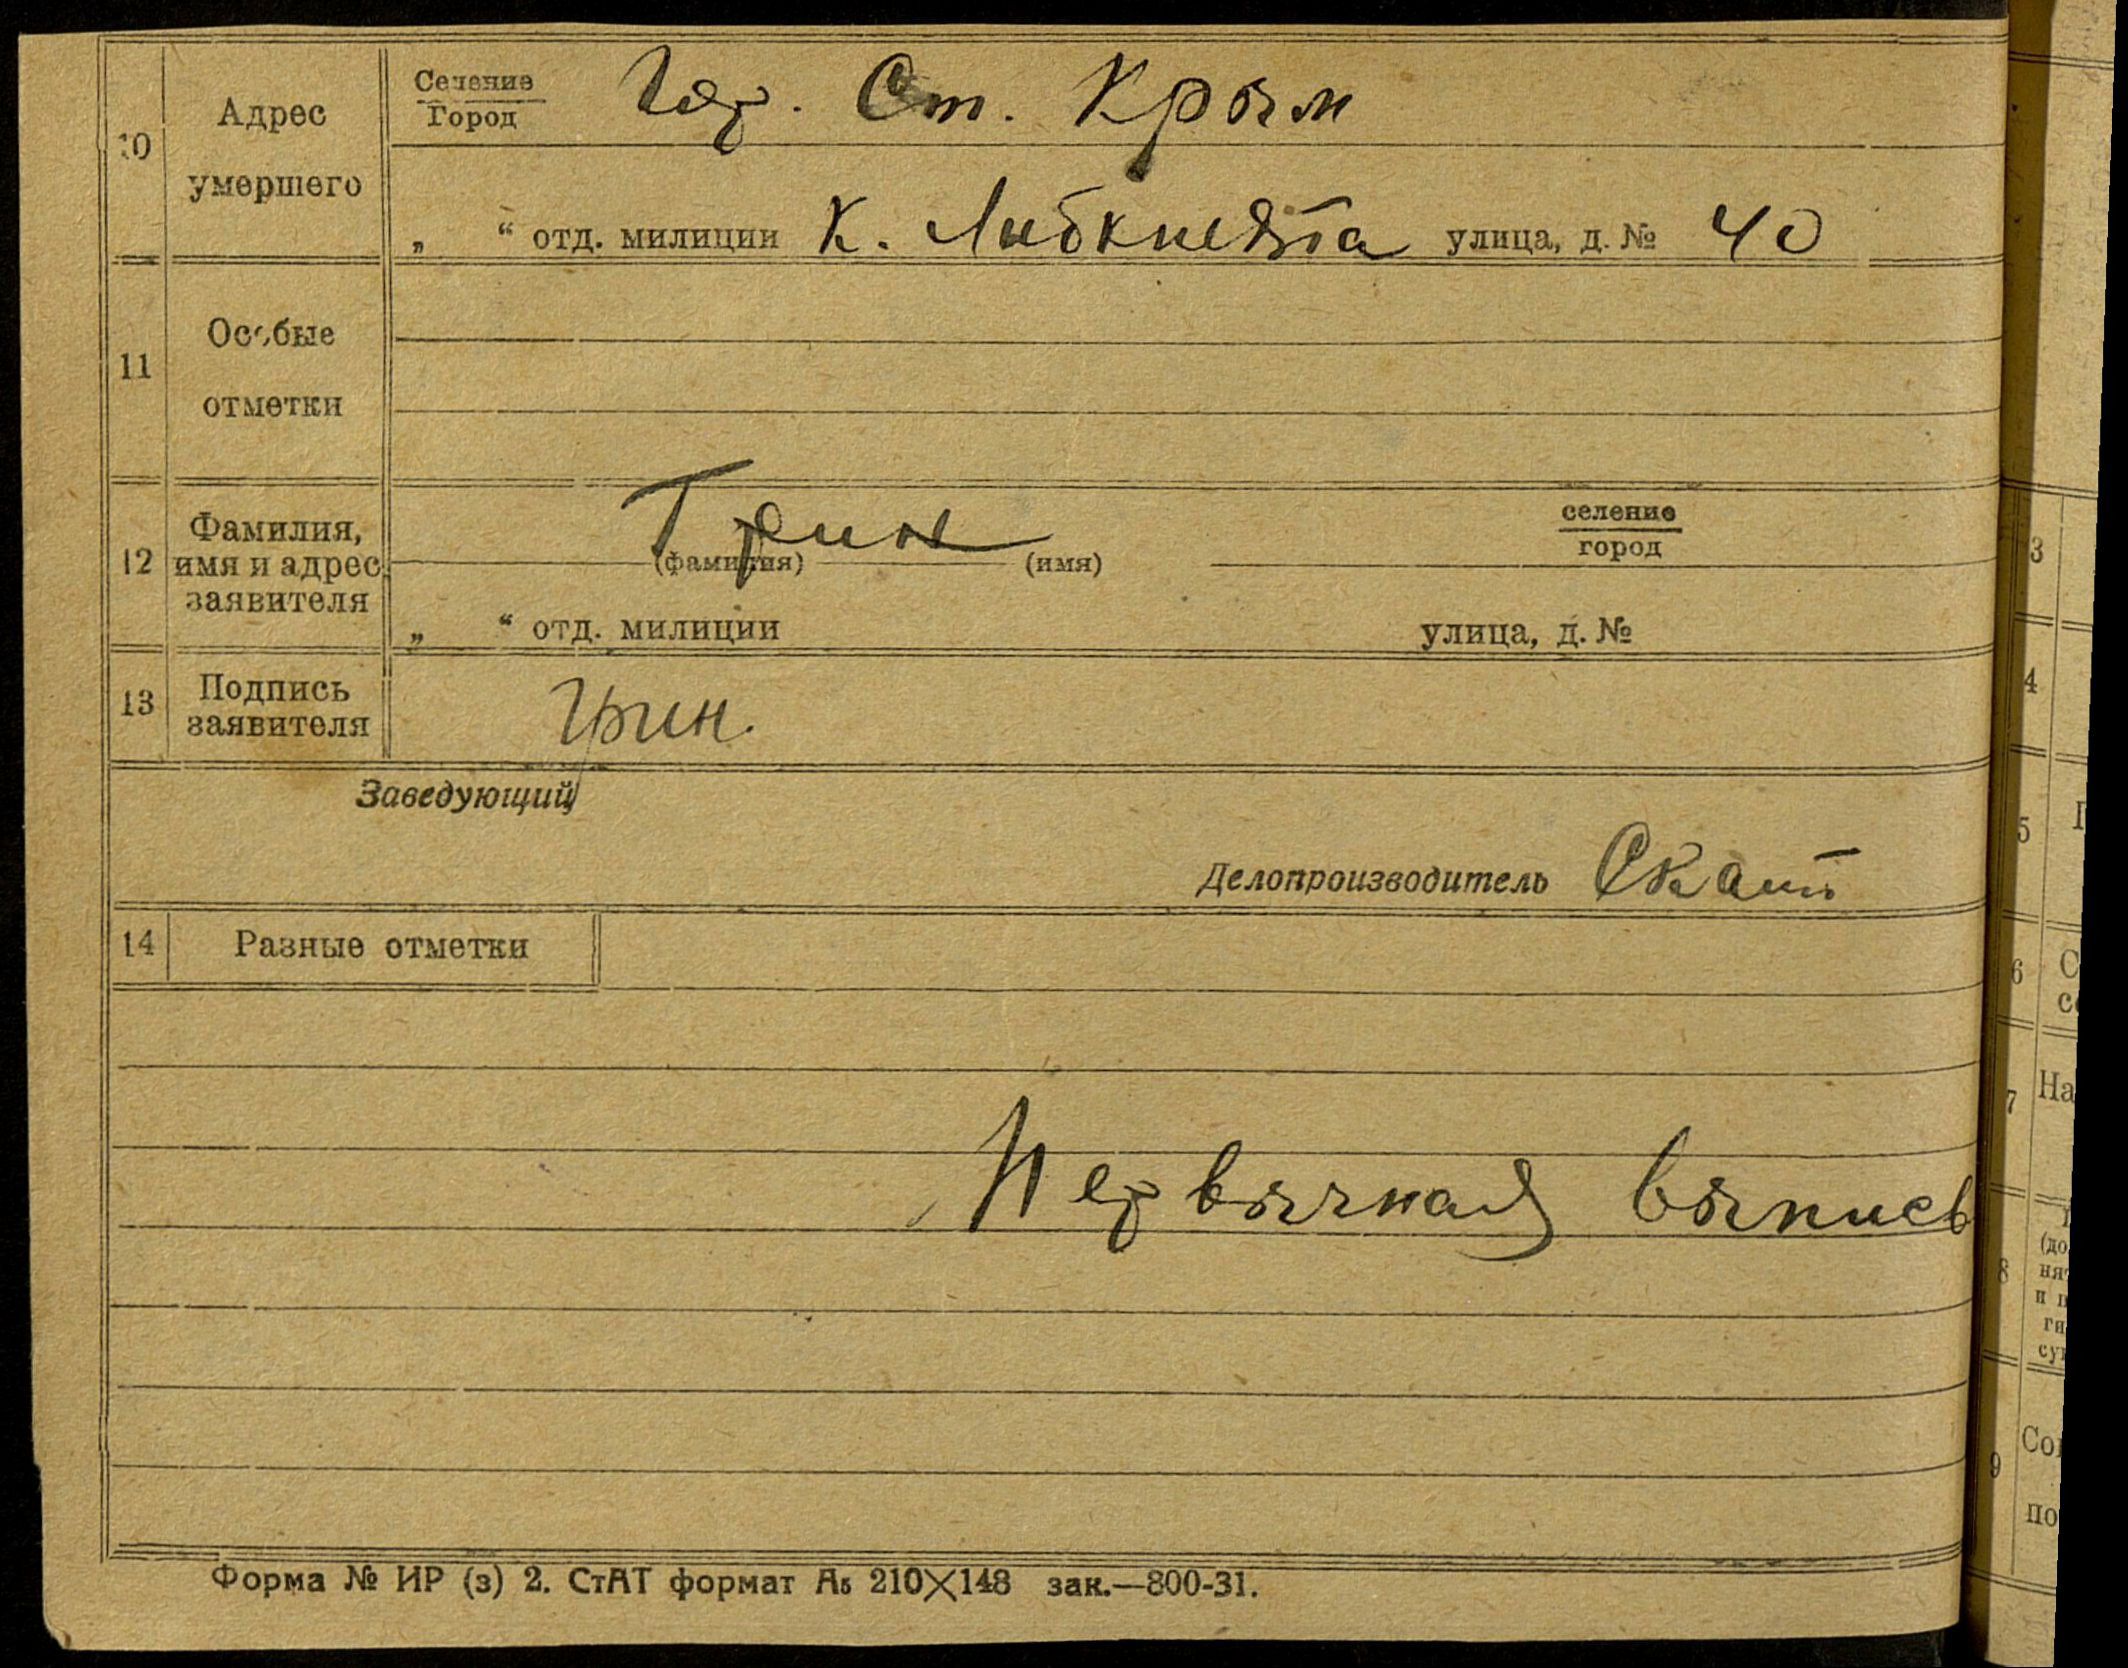 10 Адрес умершего
Селение
Город
Гор. Ст. Крым
„ “ отд. милиции К. Либкнехта улица, д. № 40
11 Особые отметки
12 Фамилия, имя и адрес заявителя
Грин
(фамилия) (имя)
селение
город
„ “ отд. милиции улица, д. №
13 Подпись заявителя
Грин.
Заведующий
Делопроизводитель Скат
14 Разные отметки
Первичная выпись
Форма № ИР (з) 2. СтАТ формат А5 210×148 зак.—800-31.
3
4
5
6
7 На
8
(до
ня
и п
ги
су
9
Со
по